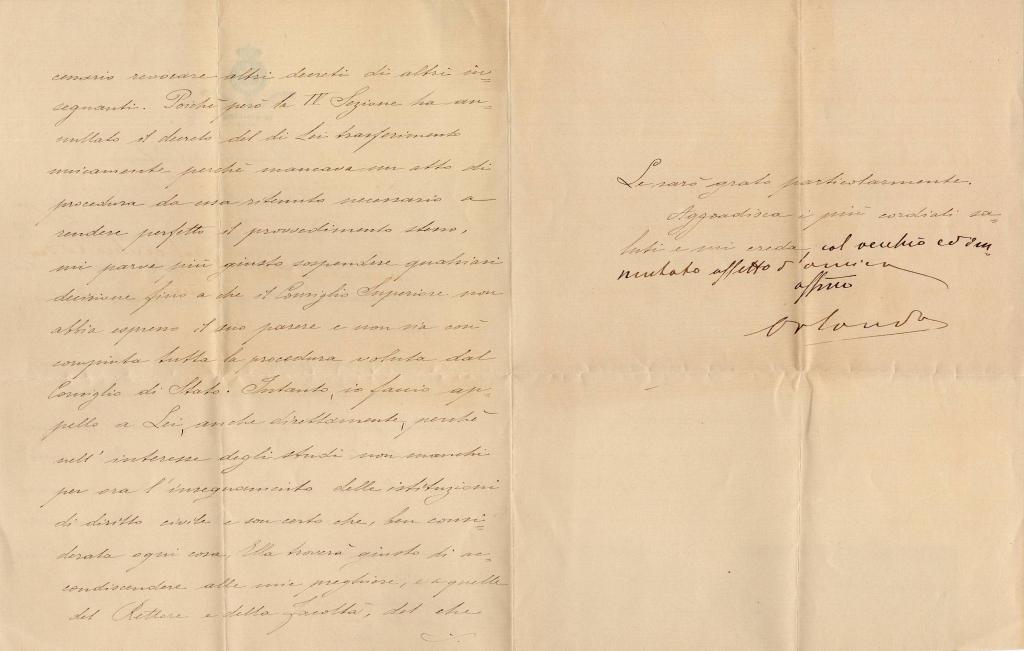 cessario revocare altri decreti di altri in=
segnanti. Poichè però la IV Sezione ha an=
nullato il decreto del di Lei trasferimento
unicamente perchè mancava un atto di
procedura da essa ritenuto necessario a
rendere perfetto il provvedimento stesso,
mi parve più giusto sospendere qualsiasi
decisione fino a che il Consiglio Superiore non
abbia espresso il suo parere e non sia così
compiuta tutta la procedura voluta dal
Consiglio di Stato. Intanto, io faccio ap=
pello a Lei, anche direttamente, perchè
nell' interesse degli studi non manchi
per ora l'insegnamento delle istituzioni
di diritto civile e son certo che, ben consi=
derata ogni cosa, Ella troverà giusto di ac=
condiscendere alle mie preghiere, e a quelle
del Rettore e della Facoltà, del che
Le sarò grato particolarmente.
Aggradisca i più cordiali sa=
luti e mi creda, col vecchio ed im=
mutato affetto d'amico
affmo
Orlando